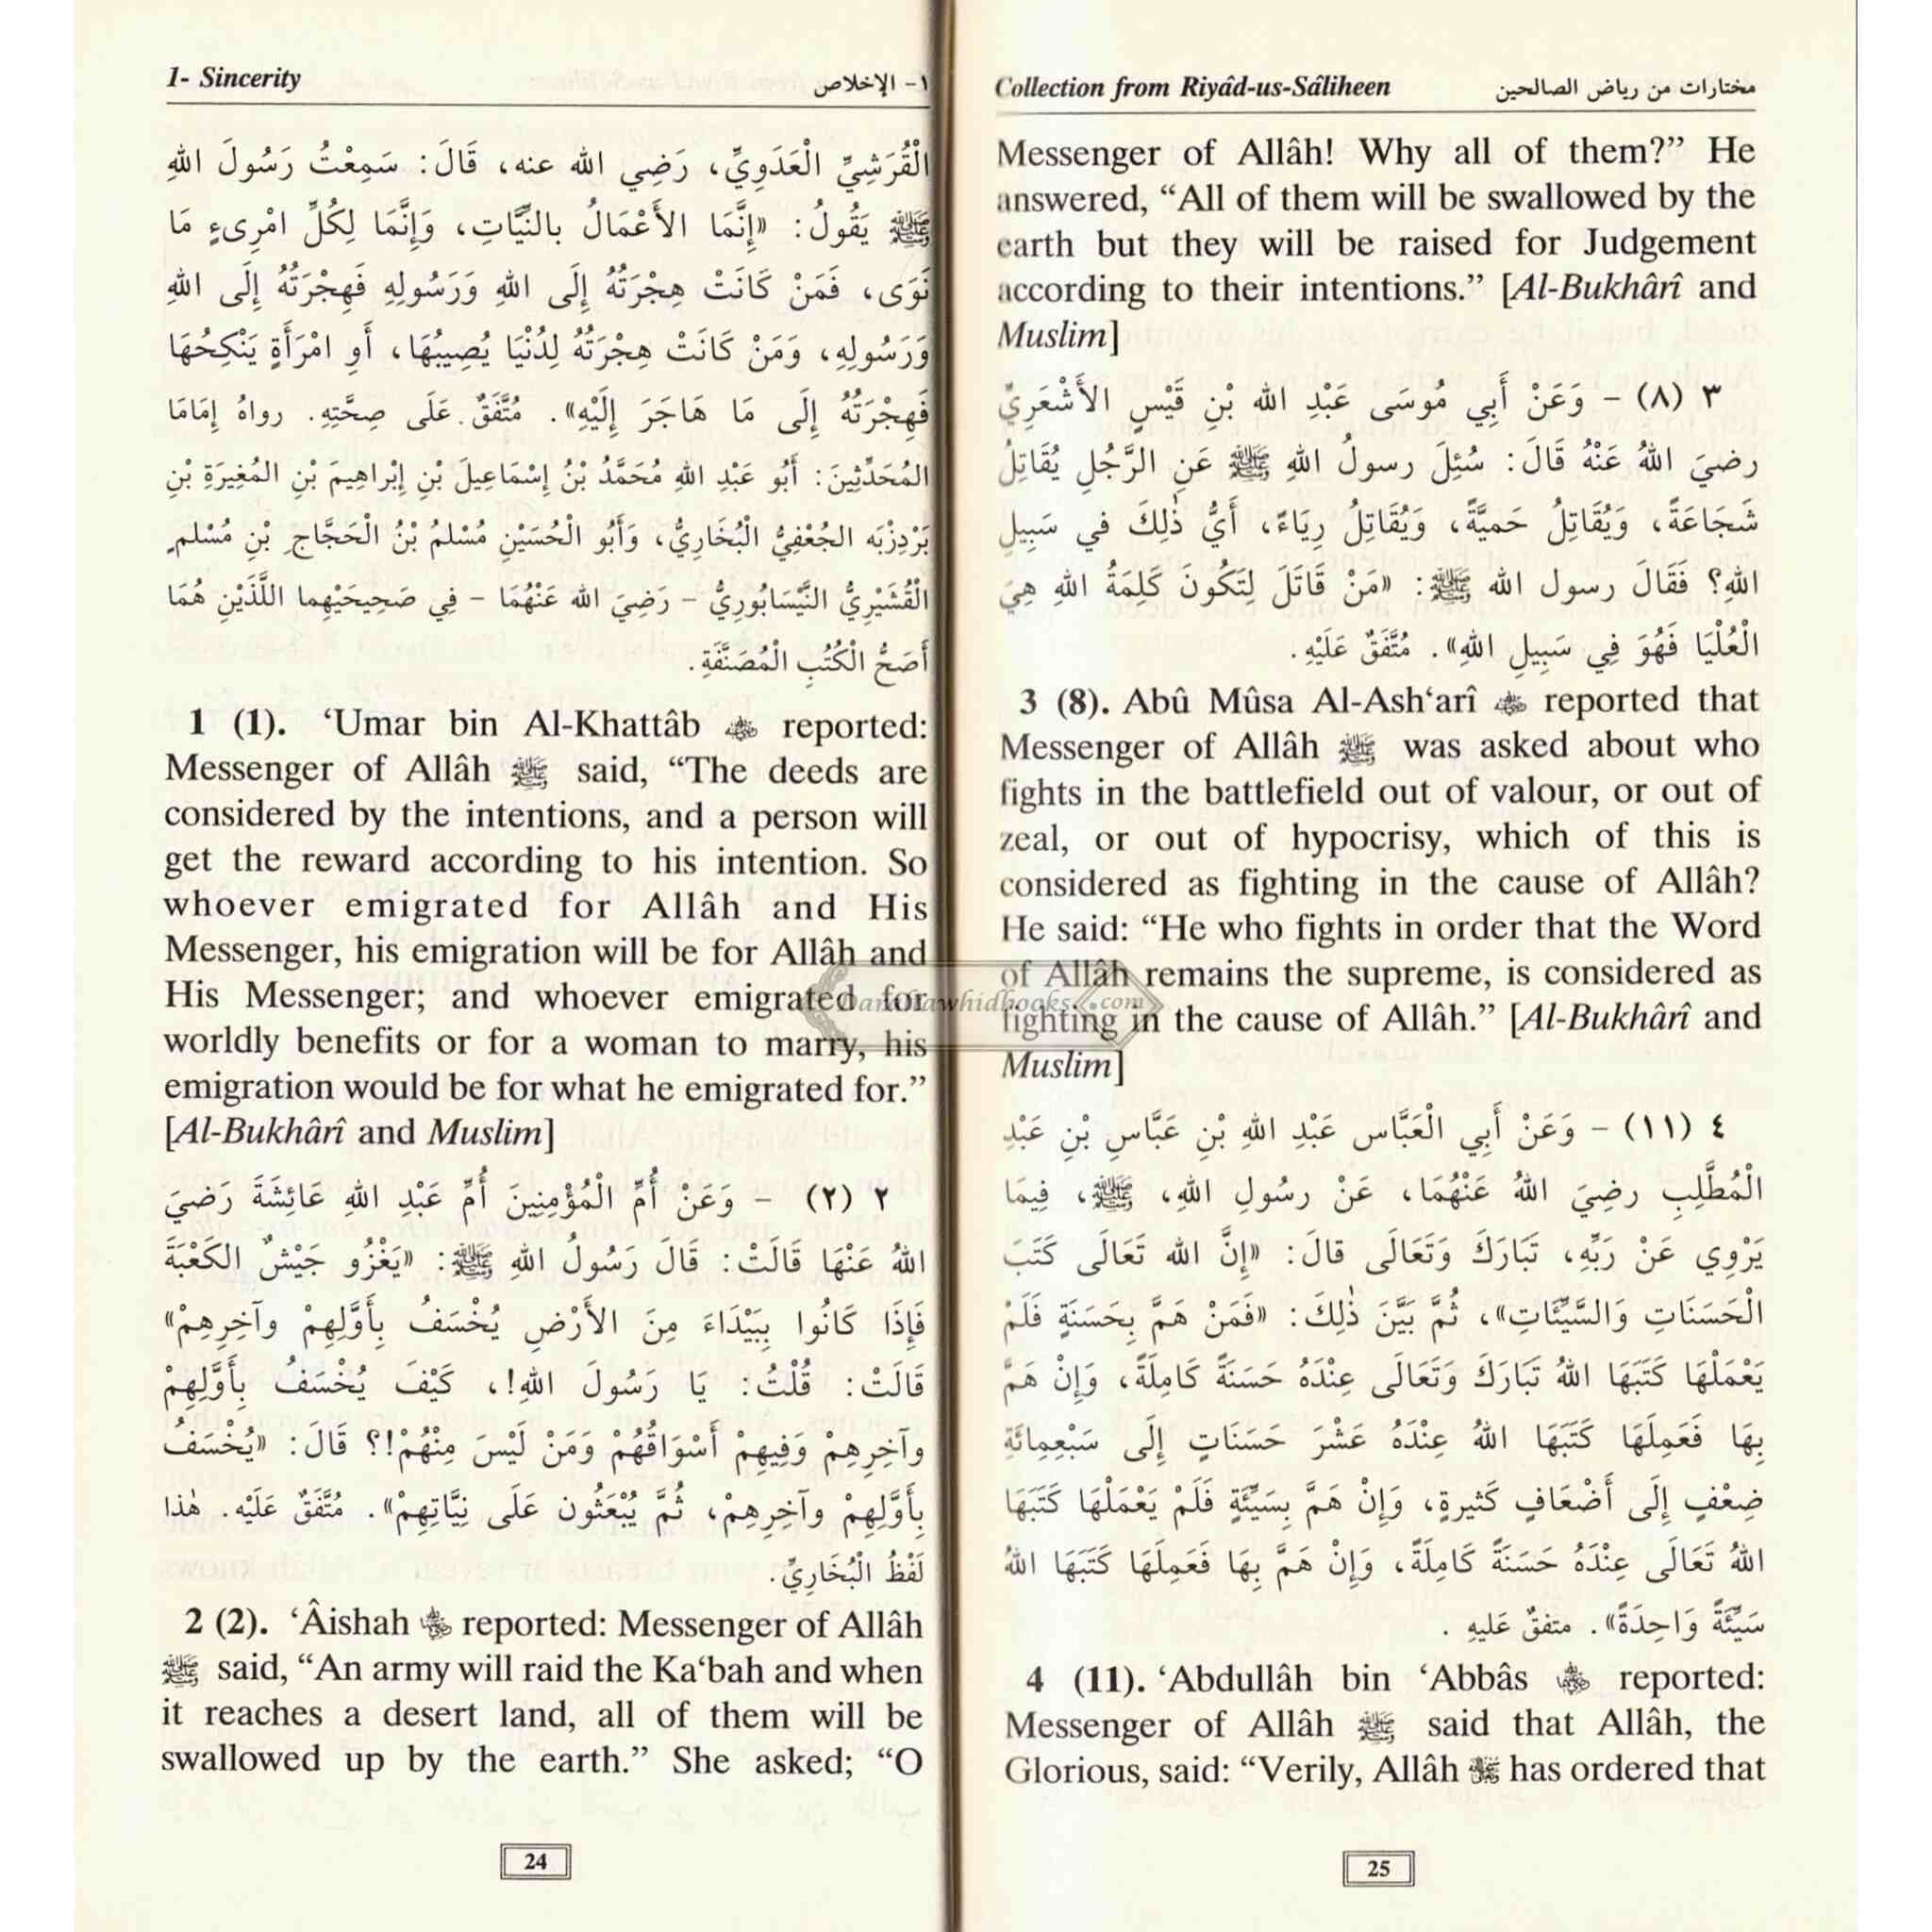 1- Sincerity
١- الإخلاص
الْقُرَشِيِّ الْعَدَوِيِّ، رَضِي الله عنه، قَالَ: سَمِعْتُ رَسُولَ اللهِ
ﷺ يَقُولُ: «إِنَّمَا الأَعْمَالُ بالنِّيَّاتِ، وَإِنَّمَا لِكُلِّ امْرِىءٍ مَا
نَوَى، فَمَنْ كَانَتْ هِجْرَتُهُ إِلَى اللهِ وَرَسُولِهِ فَهِجْرَتُهُ إِلَى اللهِ
وَرَسُولِهِ، وَمَنْ كَانَتْ هِجْرَتُهُ لِدُنْيَا يُصِيبُهَا، أَوِ امْرَأَةٍ يَنْكِحُهَا
فَهِجْرَتُهُ إِلَى مَا هَاجَرَ إِلَيْهِ». مُتَّفَقٌ عَلَى صِحَّتِهِ. رواهُ إِمَامَا
المُحَدِّثِينَ: أَبُو عَبْدِ اللهِ مُحَمَّدُ بْنُ إِسْمَاعِيلَ بْنِ إِبْراهِيمَ بْنِ المُغِيرَةِ بْنِ
بَرْدِزْبَه الجُعْفِيُّ الْبُخَارِيُّ، وَأَبُو الْحُسَيْنِ مُسْلمُ بْنُ الْحَجَّاجِ بْنِ مُسْلمٍ
الْقُشَيْرِيُّ النَّيْسَابُورِيُّ - رَضِيَ الله عَنْهُمَا - فِي صَحِيحَيْهِما اللَّذَيْنِ هُمَا
أَصَحُّ الْكُتُبِ الْمُصَنَّفَةِ.
1 (1). ‘Umar bin Al-Khattâb رضي الله عنه reported:
Messenger of Allâh ﷺ said, “The deeds are
considered by the intentions, and a person will
get the reward according to his intention. So
whoever emigrated for Allâh and His
Messenger, his emigration will be for Allâh and
His Messenger; and whoever emigrated for
worldly benefits or for a woman to marry, his
emigration would be for what he emigrated for.”
[Al-Bukhârî and Muslim]
٢ (٢) - وَعَنْ أُمِّ الْمُؤْمِنِينَ أُمِّ عَبْدِ اللهِ عَائِشَةَ رَضِيَ
اللهُ عَنْهَا قَالَتْ: قَالَ رَسُولُ اللهِ ﷺ: «يَغْزُو جَيْشٌ الكَعْبَةَ
فَإِذَا كَانُوا بِبَيْدَاءَ مِنَ الأَرْضِ يُخْسَفُ بِأَوَّلِهِمْ وآخِرِهِمْ»
قَالَتْ: قُلْتُ: يَا رَسُولَ اللهِ!، كَيْفَ يُخْسَفُ بِأَوَّلِهِمْ
وآخِرِهِمْ وَفِيهِمْ أَسْوَاقُهُمْ وَمَنْ لَيْسَ مِنْهُمْ!؟ قَالَ: «يُخْسَفُ
بِأَوَّلِهِمْ وآخِرِهِمْ، ثُمَّ يُبْعَثُون عَلَى نِيَّاتِهِمْ». مُتَّفَقٌ عَلَيْه. هٰذا
لَفْظُ الْبُخَارِيِّ.
2 (2). ‘Âishah رضي الله عنها reported: Messenger of Allâh
ﷺ said, “An army will raid the Ka‘bah and when
it reaches a desert land, all of them will be
swallowed up by the earth.” She asked; “O
24
Collection from Riyâd-us-Sâliheen
مختارات من رياض الصالحين
Messenger of Allâh! Why all of them?” He
answered, “All of them will be swallowed by the
earth but they will be raised for Judgement
according to their intentions.” [Al-Bukhârî and
Muslim]
٣ (٨) - وَعَنْ أَبِي مُوسَى عَبْدِ الله بْنِ قَيْسٍ الأَشْعَرِيِّ
رضيَ اللهُ عَنْهُ قَالَ: سُئِلَ رسولُ اللهِ ﷺ عَنِ الرَّجُلِ يُقَاتِلُ
شَجَاعَةً، وَيُقَاتِلُ حَميَّةً، وَيُقَاتِلُ رِيَاءً، أَيُّ ذٰلِكَ في سَبِيلِ
اللهِ؟ فَقَالَ رسول الله ﷺ: «مَنْ قَاتَلَ لِتَكُونَ كَلِمَةُ اللهِ هِيَ
الْعُلْيَا فَهُوَ فِي سَبِيلِ اللهِ». مُتَّفَقٌ عَلَيْهِ.
3 (8). Abû Mûsa Al-Ash‘arî رضي الله عنه reported that
Messenger of Allâh ﷺ was asked about who
fights in the battlefield out of valour, or out of
zeal, or out of hypocrisy, which of this is
considered as fighting in the cause of Allâh?
He said: “He who fights in order that the Word
of Allâh remains the supreme, is considered as
fighting in the cause of Allâh.” [Al-Bukhârî and
Muslim]
٤ (١١) - وَعَنْ أَبِي الْعَبَّاس عَبْدِ اللهِ بْنِ عَبَّاسِ بْنِ عَبْدِ
الْمُطَّلِبِ رضِيَ اللهُ عَنْهُمَا، عَنْ رسُولِ اللهِ، ﷺ، فِيمَا
يَرْوِي عَنْ رَبِّهِ، تَبَارَكَ وَتَعَالَى قالَ: «إِنَّ الله تَعَالَى كَتَبَ
الْحَسَنَاتِ وَالسَّيِّئَاتِ»، ثُمَّ بَيَّنَ ذٰلِكَ: «فَمَنْ هَمَّ بِحَسَنَةٍ فَلَمْ
يَعْمَلْهَا كَتَبَهَا اللهُ تَبَارَكَ وَتَعَالَى عِنْدَهُ حَسَنَةً كَامِلَةً، وَإِنْ هَمَّ
بِهَا فَعَمِلَهَا كَتَبَهَا اللهُ عِنْدَهُ عَشْرَ حَسَنَاتٍ إِلَى سَبْعِمِائَةِ
ضِعْفٍ إِلَى أَضْعَافٍ كَثيرةٍ، وَإِنْ هَمَّ بِسَيِّئَةٍ فَلَمْ يَعْمَلْهَا كَتَبَهَا
اللهُ تَعَالَى عِنْدَهُ حَسَنَةً كَامِلَةً، وَإِنْ هَمَّ بِهَا فَعَمِلَهَا كَتَبَهَا اللهُ
سَيِّئَةً وَاحِدَةً». متفقٌ عَليهِ.
4 (11). ‘Abdullâh bin ‘Abbâs رضي الله عنهما reported:
Messenger of Allâh ﷺ said that Allâh, the
Glorious, said: “Verily, Allâh ﷻ has ordered that
25